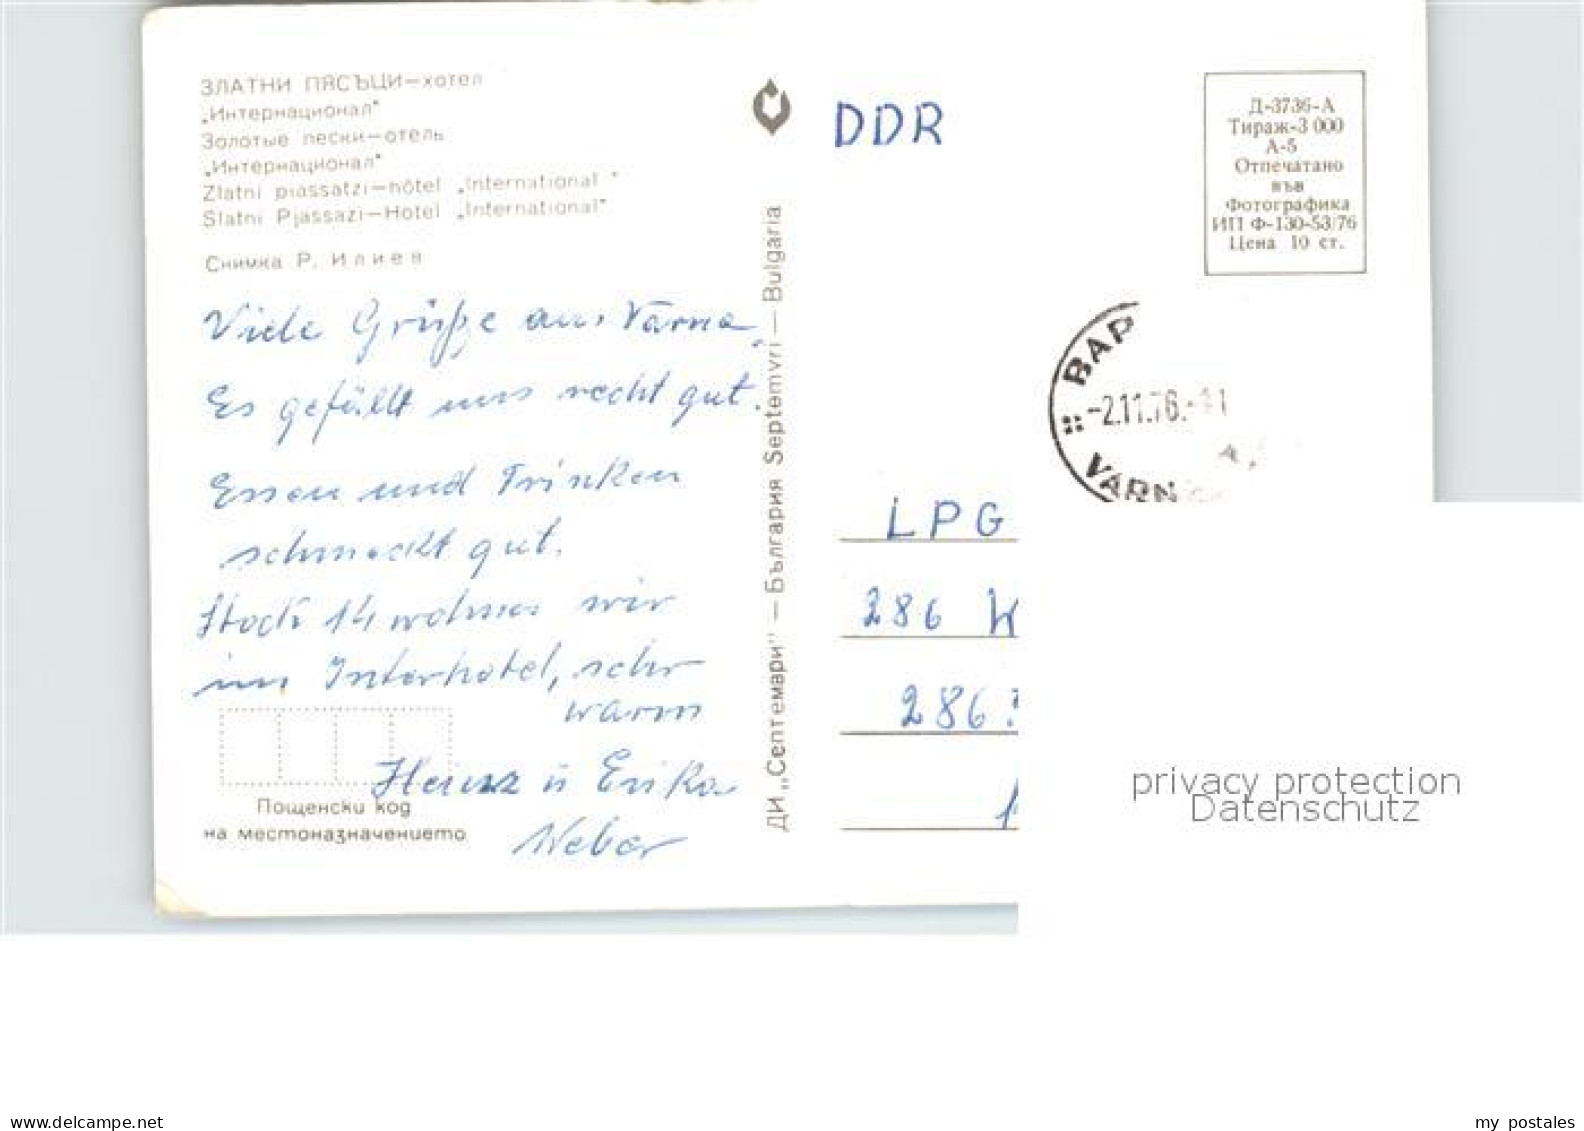 ЗЛАТНИ ПЯСЪЦИ—хотел
„Интернационал"
Золотые пески—отель
„Интернационал"
Zlatni piassatzi—hôtel „International "
Slatni Pjassazi—Hotel „International"
Снимка Р. Илиев
Viele Grüße aus Varna,
Es gefällt uns recht gut.
Essen und Trinken
schmeckt gut.
Stock 14 wohnen wir
im Interhotel, sehr
warm
Heinz u Erika
Weber
Пощенски код
на местоназначението
ДИ „Септември" — България Septemvri — Bulgaria
DDR
Д-3736-А
Тираж-3 000
А-5
Отпечатано
във
Фотографика
ИП Ф-130-53/76
Цена 10 ст.
ВАР
-2.11.76.-
VARN
LPG
286
286
privacy protection
Datenschutz
www.delcampe.net
my postales